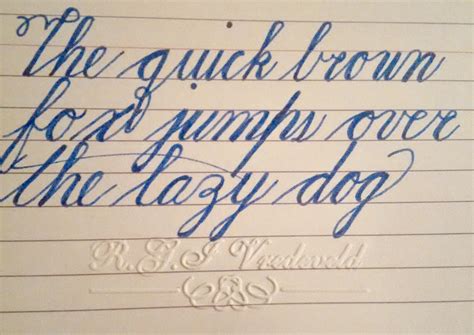 The quick brown
fox jumps over
the lazy dog
R.G.J Vredeveld